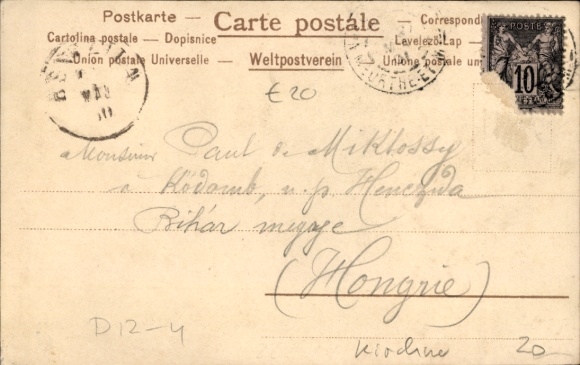 Postkarte — Carte postále — Correspond
Cartolina postale — Dopisnice Levelező-Lap —
Union postale Universelle — Weltpostverein — Unione postale un
POSTE
10
MEURTHE-ET-M
€20
Monsieur Paul de Miklossy
a Ködomb, u. p. Henczida
Bihár megye
(Hongrie)
D12-4
20